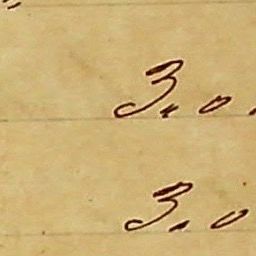 3. 0.
3. 0